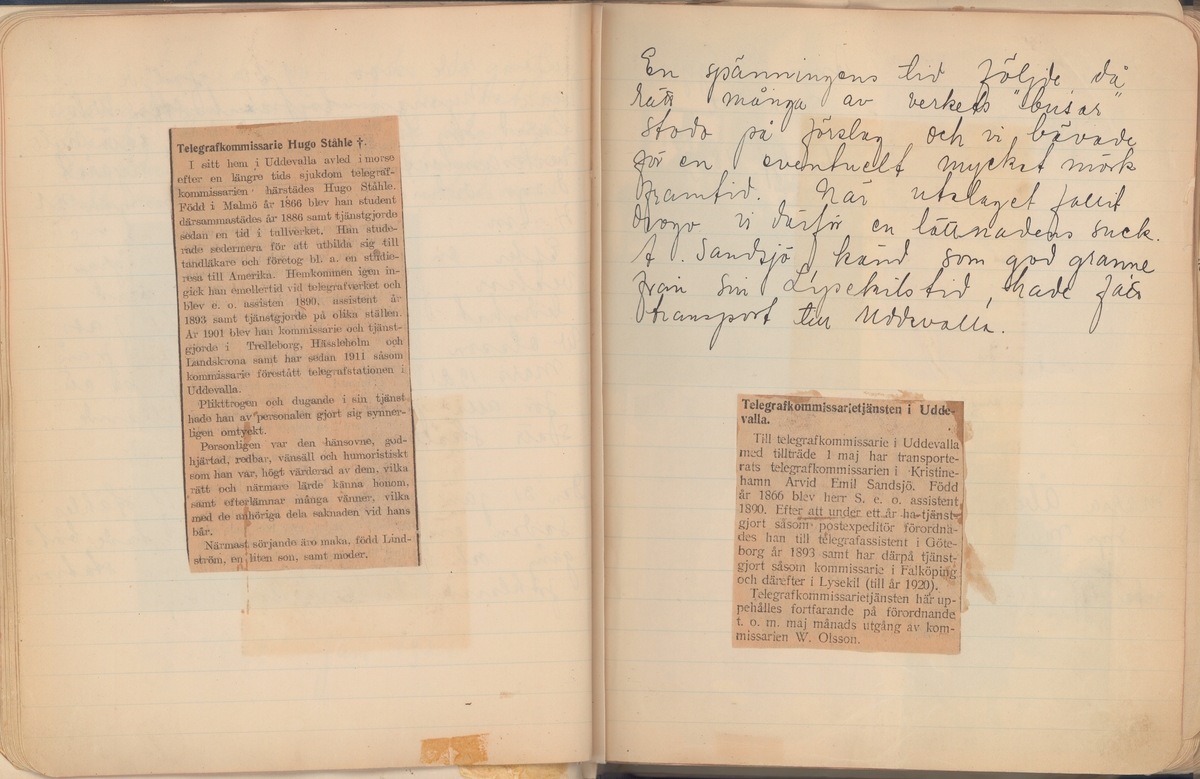 Telegrafkommissarie Hugo Ståhle †.
I sitt hem i Uddevalla avled i morse
efter en längre tids sjukdom telegraf-
kommissarien härstädes Hugo Ståhle.
Född i Malmö år 1866 blev han student
därsammastädes år 1886 samt tjänstgjorde
sedan en tid i tullverket. Han stude-
rade sedermera för att utbilda sig till
tandläkare och företog bl. a. en studie-
resa till Amerika. Hemkommen igen in-
gick han emellertid vid telegrafverket och
blev e. o. assisten 1890, assistent år
1893 samt tjänstgjorde på olika ställen.
År 1901 blev han kommissarie och tjänst-
gjorde i Trelleborg, Hässleholm och
Landskrona samt har sedan 1911 såsom
kommissarie förestått telegrafstationen i
Uddevalla.
Plikttrogen och dugande i sin tjänst
hade han av personalen gjort sig synner-
ligen omtyckt.
Personligen var den hänsovne, god-
hjärtad, redbar, vänsäll och humoristiskt
som han var, högt värderad av dem, vilka
rätt och närmare lärde känna honom,
samt efterlämnar många vänner, vilka
med de anhöriga dela saknaden vid hans
bår.
Närmast sörjande äro maka, född Lind-
ström, en liten son, samt moder.
En spänningens tid följde då
rätt många av verkets "busar"
stodo på förslag och vi bävade
för en eventuelt mycket mörk
framtid. När utslaget fallit
drogo vi därför en lättnadens suck.
A. Sandsjö, känd som god granne
från sin Lysekilstid, hade fått
transport till Uddevalla.
Telegrafkommissarietjänsten i Udde-
valla.
Till telegrafkommissarie i Uddevalla
med tillträde 1 maj har transporte-
rats telegrafkommissarien i Kristine-
hamn Arvid Emil Sandsjö. Född
år 1866 blev herr S. e. o. assistent
1890. Efter att under ett år ha tjänst-
gjort såsom postexpeditör förordna-
des han till telegrafassistent i Göte-
borg år 1893 samt har därpå tjänst-
gjort såsom kommissarie i Falköping
och därefter i Lysekil (till år 1920).
Telegrafkommissarietjänsten här up-
pehålles fortfarande på förordnande
t. o. m. maj månads utgång av kom-
missarien W. Olsson.